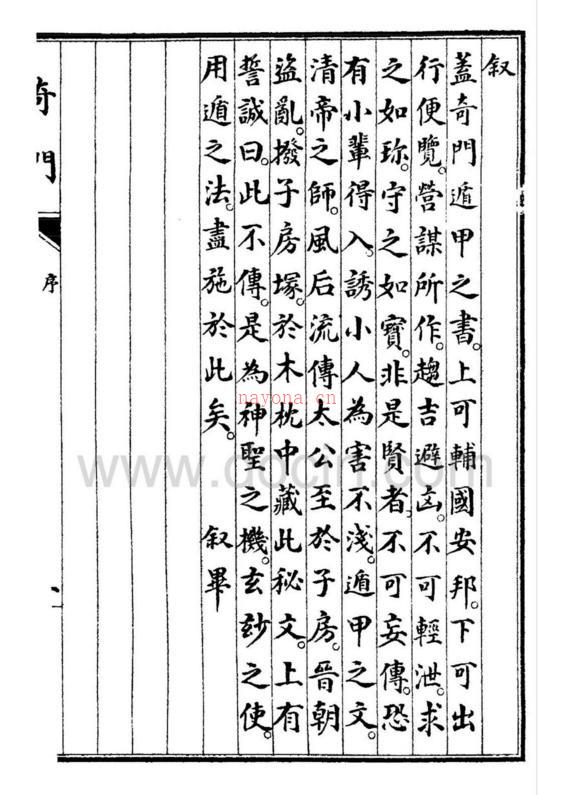 叙
蓋奇門遁甲之書。上可輔國安邦。下可出
行便覽。營謀所作。趨吉避凶。不可輕泄。求
之如珎。守之如寶。非是賢者。不可妄傳。恐
有小輩得入。誘小人為害不淺。遁甲之文。
清帝之師。風后流傳太公至於子房。晉朝
盜亂。撥子房塚。於木枕中藏此秘文。上有
誓誠曰。此不傳。是為神聖之機。玄玅之使。
用遁之法。盡施於此矣。 叙畢
奇門 序
nayona.cn
www.docin.com